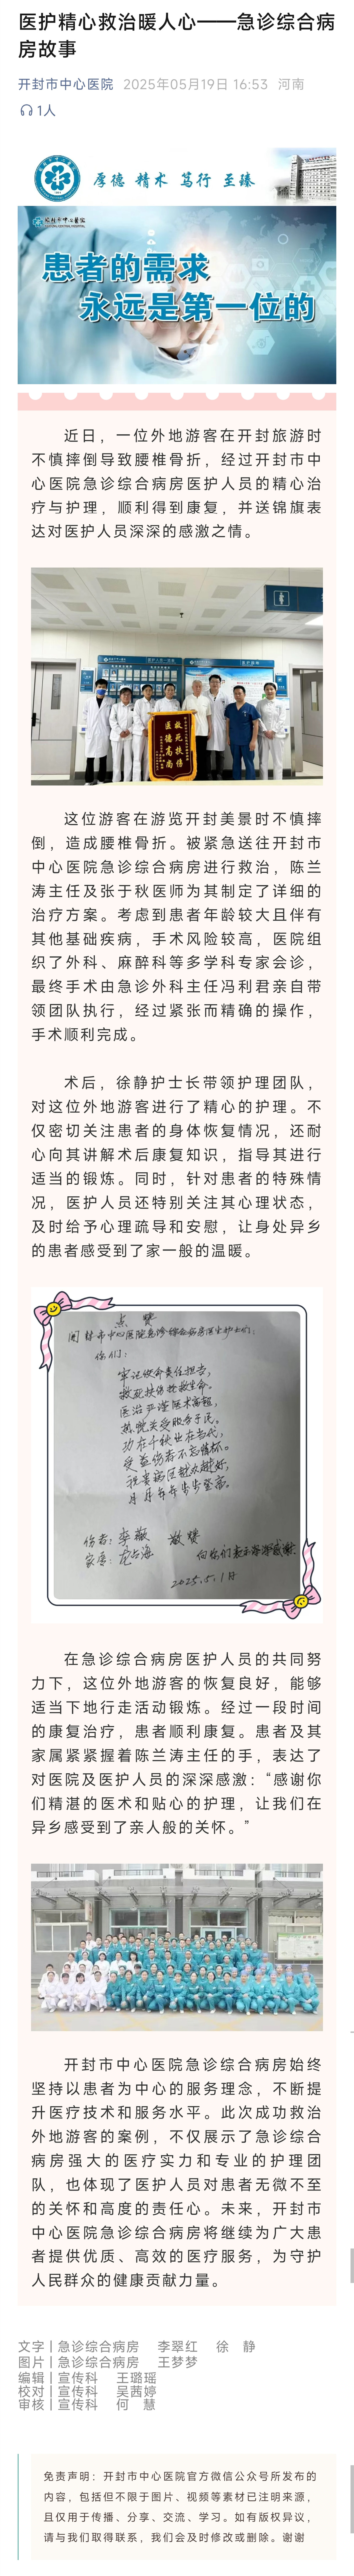 医护精心救治暖人心——急诊综合病
房故事
开封市中心医院 2025年05月19日 16:53 河南
1人
厚德 精术 笃行 至臻
开封市中心医院
患者的需求
永远是第一位的
近日，一位外地游客在开封旅游时
不慎摔倒导致腰椎骨折，经过开封市中
心医院急诊综合病房医护人员的精心治
疗与护理，顺利得到康复，并送锦旗表
达对医护人员深深的感激之情。
救死扶伤
医德高尚
这位游客在游览开封美景时不慎摔
倒，造成腰椎骨折。被紧急送往开封市
中心医院急诊综合病房进行救治，陈兰
涛主任及张于秋医师为其制定了详细的
治疗方案。考虑到患者年龄较大且伴有
其他基础疾病，手术风险较高，医院组
织了外科、麻醉科等多学科专家会诊，
最终手术由急诊外科主任冯利君亲自带
领团队执行，经过紧张而精确的操作，
手术顺利完成。
术后，徐静护士长带领护理团队，
对这位外地游客进行了精心的护理。不
仅密切关注患者的身体恢复情况，还耐
心向其讲解术后康复知识，指导其进行
适当的锻炼。同时，针对患者的特殊情
况，医护人员还特别关注其心理状态，
及时给予心理疏导和安慰，让身处异乡
的患者感受到了家一般的温暖。
点赞
开封市中心医院急诊综合病房医生护士们：
你们：
牢记使命责任担当，
救死扶伤拯救生命。
医治严谨医术高超，
热忱关爱服务于民。
功在千秋业在当代，
受益伤者不忘情怀。
祝贵病区越众越好，
月月年年步步登高。
伤者：李薇 敬赞
家属：
向你们表示
2025.5.1日
在急诊综合病房医护人员的共同努
力下，这位外地游客的恢复良好，能够
适当下地行走活动锻炼。经过一段时间
的康复治疗，患者顺利康复。患者及其
家属紧紧握着陈兰涛主任的手，表达了
对医院及医护人员的深深感激：“感谢你
们精湛的医术和贴心的护理，让我们在
异乡感受到了亲人般的关怀。”
开封市中心医院急诊综合病房始终
坚持以患者为中心的服务理念，不断提
升医疗技术和服务水平。此次成功救治
外地游客的案例，不仅展示了急诊综合
病房强大的医疗实力和专业的护理团
队，也体现了医护人员对患者无微不至
的关怀和高度的责任心。未来，开封市
中心医院急诊综合病房将继续为广大患
者提供优质、高效的医疗服务，为守护
人民群众的健康贡献力量。
文字丨急诊综合病房 李翠红 徐 静
图片丨急诊综合病房 王梦梦
编辑丨宣传科 王璐瑶
校对丨宣传科 吴茜婷
审核丨宣传科 何 慧
免责声明：开封市中心医院官方微信公众号所发布的
内容，包括但不限于图片、视频等素材已注明来源，
且仅用于传播、分享、交流、学习。如有版权异议，
请与我们取得联系，我们会及时修改或删除。谢谢